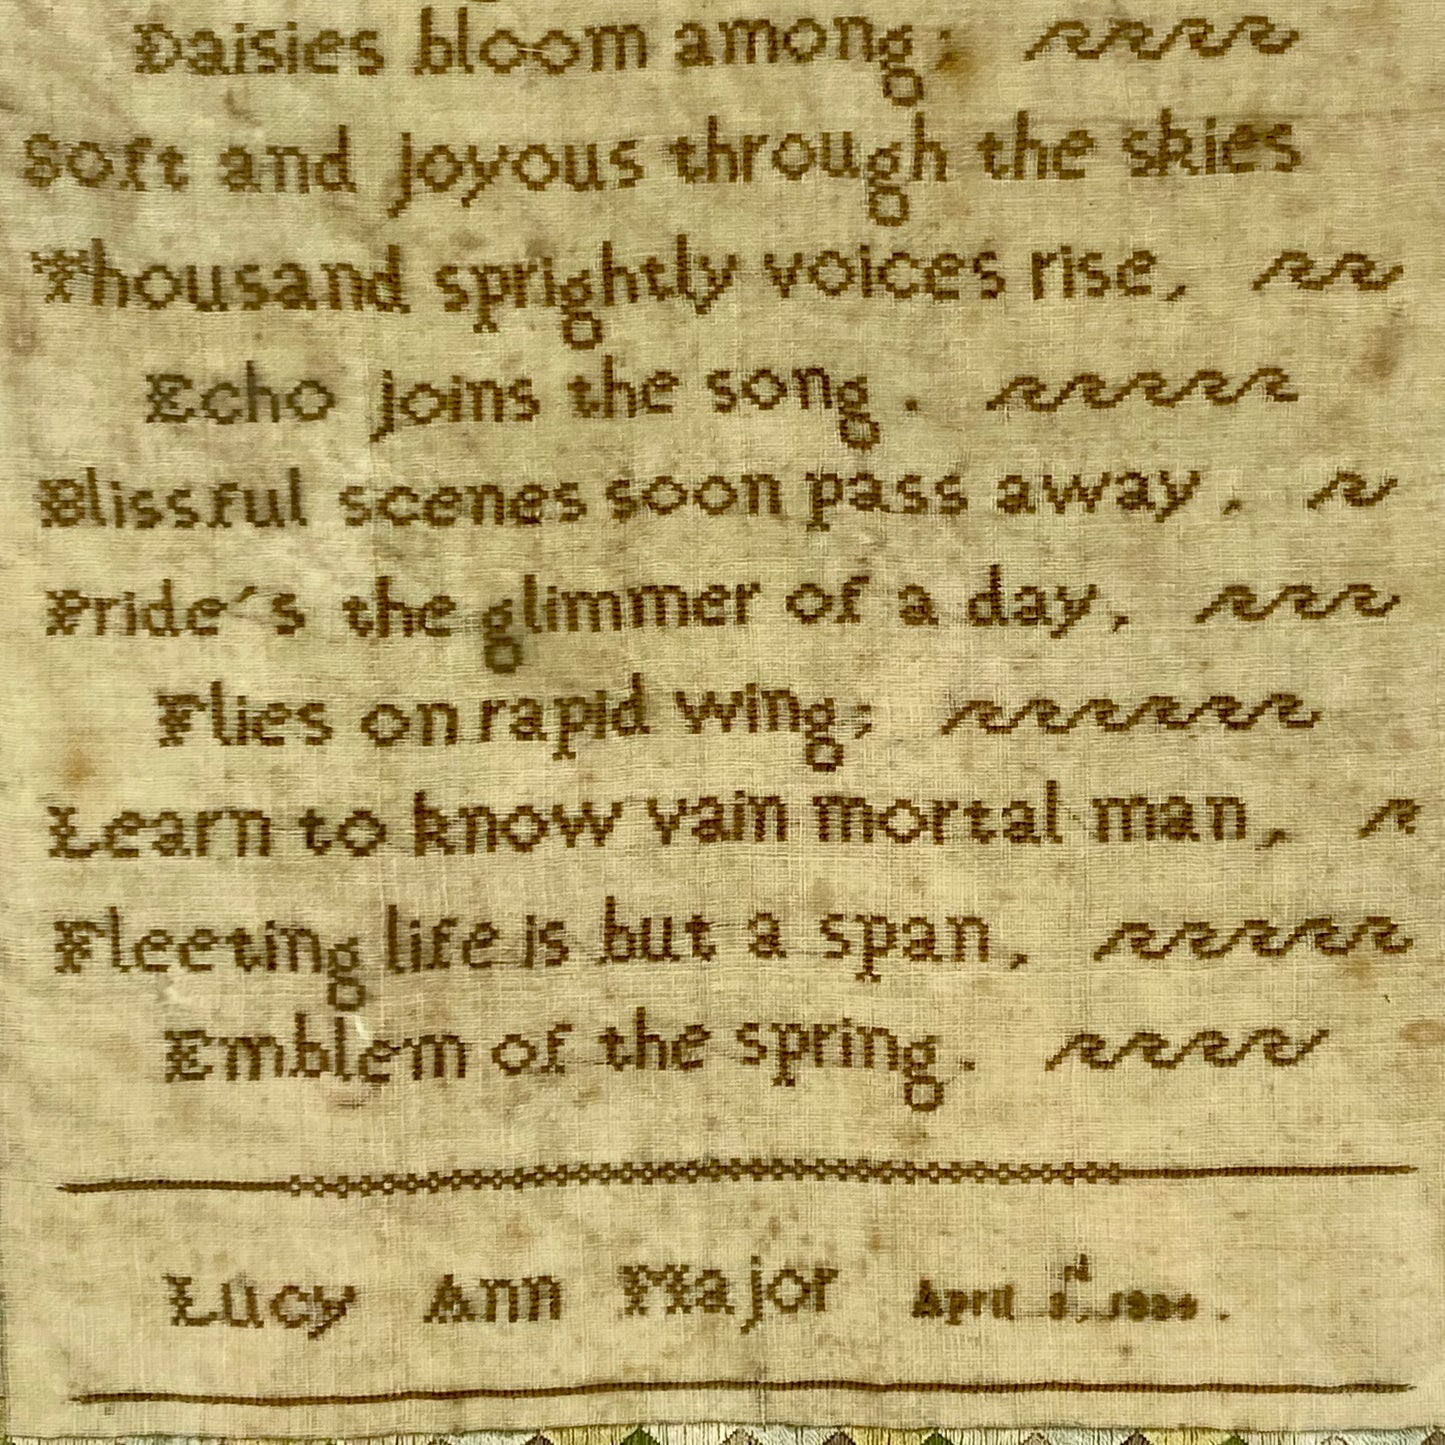 Daisies bloom among;
Soft and joyous through the skies
Thousand sprightly voices rise,
Echo joins the song.
Blissful scenes soon pass away,
Pride's the glimmer of a day,
Flies on rapid wing;
Learn to know vain mortal man,
Fleeting life is but a span,
Emblem of the spring.
Lucy Ann Major April